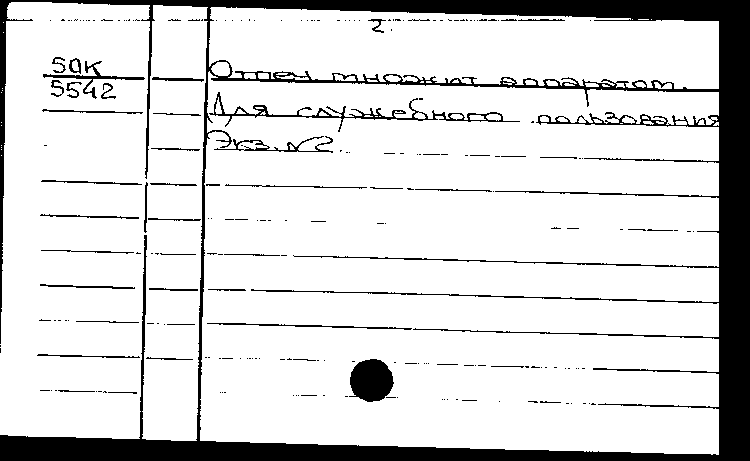 2.
50К
5542
Отпеч. множит. аппаратом.
Для служебного пользования
Экз. №2.